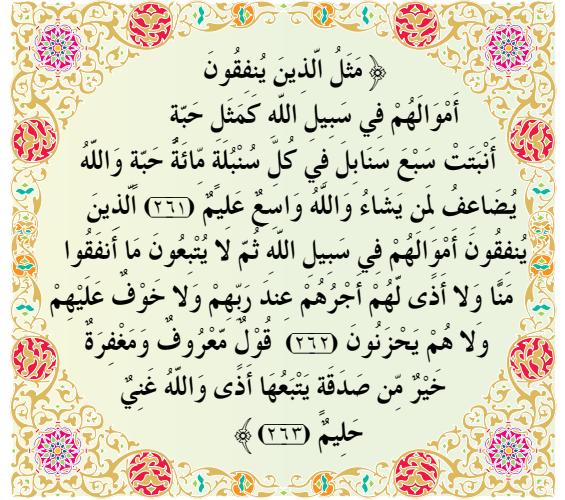 ﴿ مَثَلُ الَّذِينَ يُنفِقُونَ
أَمْوَالَهُمْ فِي سَبِيلِ اللَّهِ كَمَثَلِ حَبَّةٍ
أَنْبَتَتْ سَبْعَ سَنَابِلَ فِي كُلِّ سُنْبُلَةٍ مِّائَةُ حَبَّةٍ وَاللَّهُ
يُضَاعِفُ لِمَن يَشَاءُ وَاللَّهُ وَاسِعٌ عَلِيمٌ (٢٦١) الَّذِينَ
يُنفِقُونَ أَمْوَالَهُمْ فِي سَبِيلِ اللَّهِ ثُمَّ لا يُتْبِعُونَ مَا أَنفَقُوا
مَنًّا وَلا أَذًى لَّهُمْ أَجْرُهُمْ عِندَ رَبِّهِمْ وَلا خَوْفٌ عَلَيْهِمْ
وَلا هُمْ يَحْزَنُونَ (٢٦٢) قَوْلٌ مَّعْرُوفٌ وَمَغْفِرَةٌ
خَيْرٌ مِّن صَدَقَةٍ يَتْبَعُهَا أَذًى وَاللَّهُ غَنِيٌّ
حَلِيمٌ (٢٦٣) ﴾